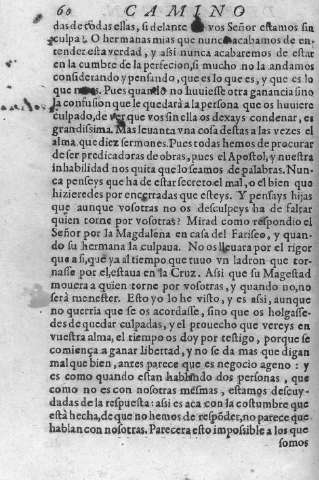 60 CAMINO
das de todas ellas, si delante de vos Señor estamos sin
culpa? O hermanas mias que nunca acabamos de en-
tender esta verdad, y assi nunca acabaremos de estar
en la cumbre de la perfecion, si mucho no la andamos
considerando y pensando, que es lo que es, y que es lo
que no es. Pues quando no huuiesse otra ganancia sino
la confusion que le quedarà a la persona que os huuiere
culpado, de ver que vos sin ella os dexays condenar, es
grandissima. Mas leuanta vna cosa destas a las vezes el
alma, que diez sermones. Pues todas hemos de procurar
de ser predicadoras de obras, pues el Apostol, y nuestra
inhabilidad nos quita que lo seamos de palabras. Nun-
ca penseys que ha de estar secreto el mal, o el bien que
hizieredes por encerradas que esteys. Y pensays hijas
que aunque vosotras no os desculpeys ha de faltar
quien torne por vosotras? Mirad como respondio el
Señor por la Magdalena en casa del Fariseo, y quan-
do su hermana la culpaua. No os lleuara por el rigor
que a si, que ya al tiempo que tuuo vn ladron que tor-
nasse por el, estaua en la Cruz. Assi que su Magestad
mouera a quien torne por vosotras, y quando no, no
serà menester. Esto yo lo he visto, y es assi, aunque
no querria que se os acordasse, sino que os holgasse-
des de quedar culpadas, y el prouecho que vereys en
vuestra alma, el tiempo os doy por testigo, porque se
comiença a ganar libertad, y no se da mas que digan
mal que bien, antes parece que es negocio ageno: y
es como quando estan hablando dos personas, que
como no es con nosotras mesmas, estamos descuy-
dadas de la respuesta: assi es aca con la costumbre que
està hecha, de que no hemos de respõder, no parece que
hablan con nosotras. Parecera esto impossible a los que
somos